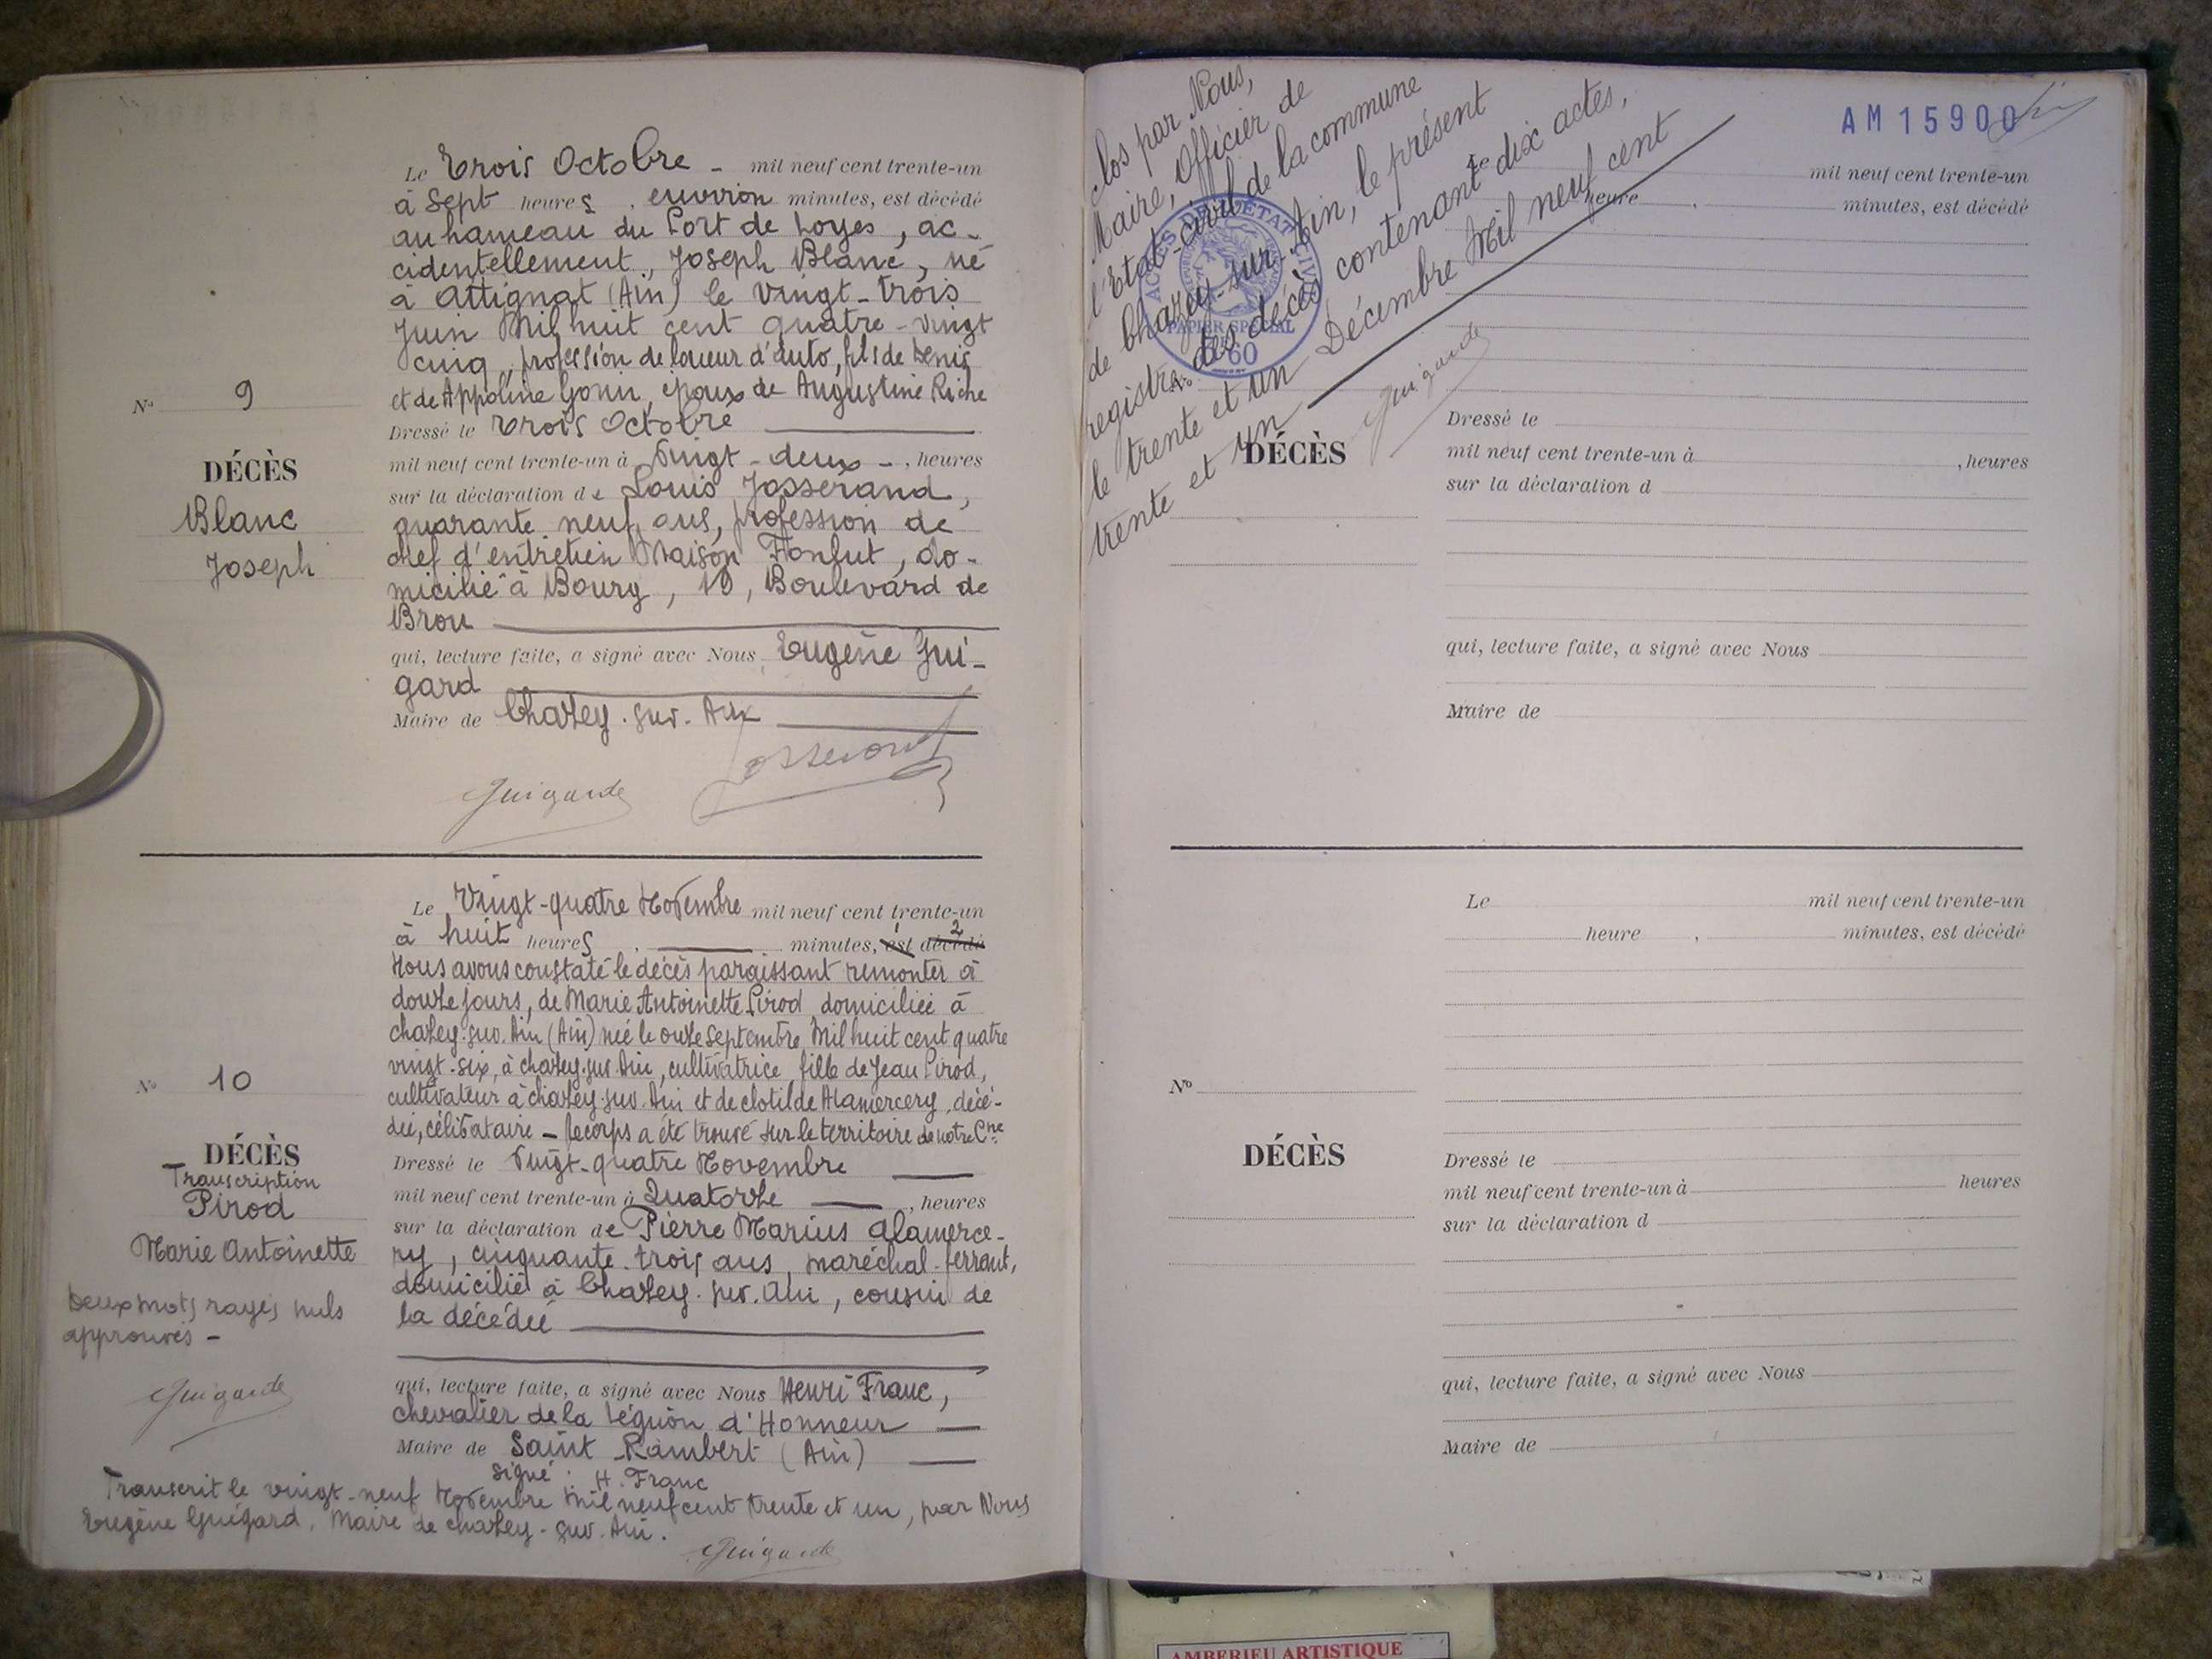 Le Trois Octobre - mil neuf cent trente-un
à Sept heures , environ minutes, est décédé
au hameau du Port de Loyes, ac-
cidentellement, Joseph Blanc, né
à Attignat (Ain) le vingt-trois
Juin Mil huit cent quatre-vingt
cinq, profession de loueur d'auto, fils de Denis
et de Appoline Gonin, époux de Augustine Riche
Nº 9
Dressé le Trois Octobre
DÉCÈS
mil neuf cent trente-un à Vingt-deux -, heures
sur la déclaration de Louis Josserand,
Blanc
quarante neuf ans, profession de
Joseph
chef d'entretien Maison Fonfut, do-
micilié à Bourg, 19, Boulevard de
Brou
qui, lecture faite, a signé avec Nous Eugène Gui-
gard
Maire de Chazey-sur-Ain
Josserand
Guigarde
Le Vingt-quatre Novembre mil neuf cent trente-un
à huit heures , minutes, est décédé 2
Nous avons constaté le décès paraissant remonter à
douze jours, de Marie Antoinette Pirod domiciliée à
chazey-sur-Ain (Ain) née le onze septembre Mil huit cent quatre
vingt-six, à chazey-sur-Ain, cultivatrice fille de Jean Pirod,
cultivateur à chazey-sur-Ain et de clotilde Alamercery, décé-
dée, célibataire - le corps a été trouvé sur le territoire de notre Cne
Nº 10
DÉCÈS
Transcription
Pirod
Marie Antoinette
Deux mots rayés nuls
approuvés -
Guigarde
Dressé le Vingt-quatre Novembre
mil neuf cent trente-un à Quatorze , heures
sur la déclaration de Pierre Marius Alamerce-
ry, cinquante-trois ans, maréchal-ferrant,
domicilié à Chazey-sur-Ain, cousin de
la décédée
qui, lecture faite, a signé avec Nous Henri Franc,
chevalier de la Légion d'Honneur
Maire de Saint-Rambert (Ain)
signé : H. Franc
Transcrit le vingt-neuf Novembre Mil neuf cent trente et un, par Nous
Eugène Guigard, Maire de chazey-sur-Ain.
Guigarde
clos par Nous,
Maire, Officier de
l'Etat-civil de la commune
de Chazey-sur-Ain, le présent
registre des décès contenant dix actes,
le trente et un Décembre Mil neuf cent
trente et un
Guigarde
ACTES DE L'ÉTAT CIVIL
PAPIER SPÉCIAL
60
AM 15900
Le mil neuf cent trente-un
heure , minutes, est décédé
Nº
DÉCÈS
Dressé le
mil neuf cent trente-un à , heures
sur la déclaration d
qui, lecture faite, a signé avec Nous
Maire de
Le mil neuf cent trente-un
heure , minutes, est décédé
Nº
DÉCÈS
Dressé le
mil neuf cent trente-un à heures
sur la déclaration d
qui, lecture faite, a signé avec Nous
Maire de
AMBERIEU ARTISTIQUE